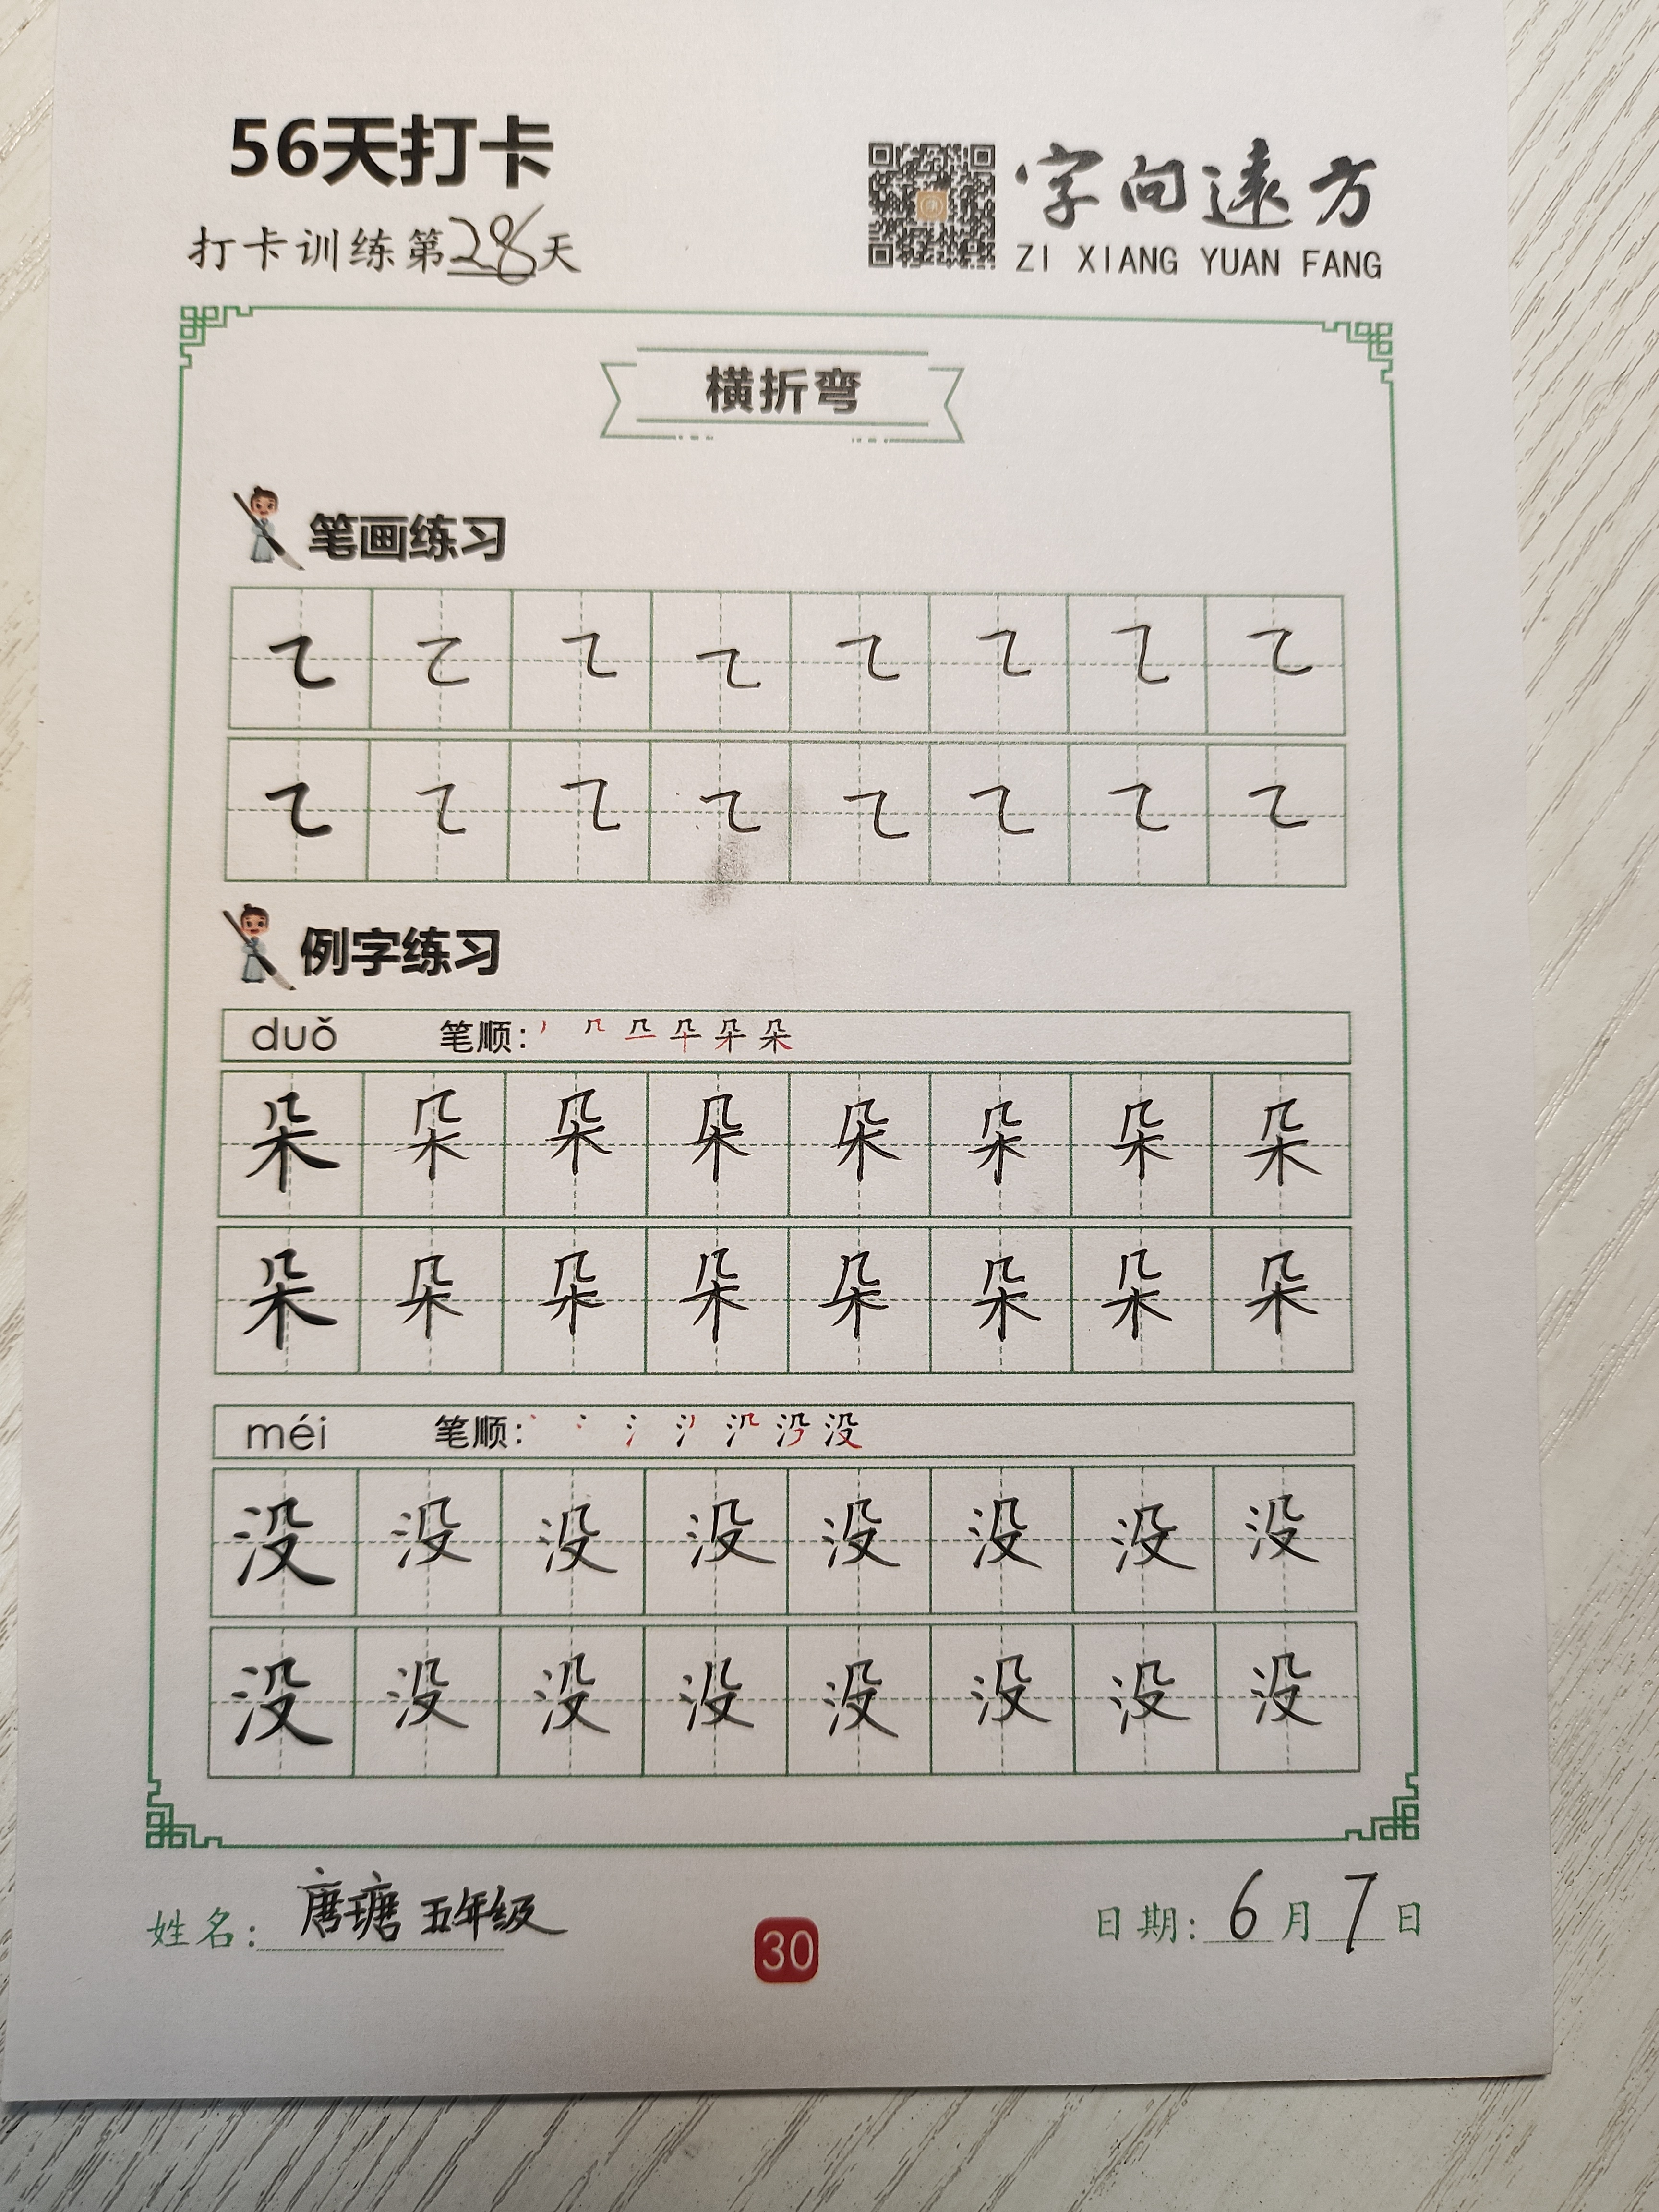 56天打卡
打卡训练第28天
字向遠方
ZI XIANG YUAN FANG
横折弯
笔画练习
㇍ ㇍ ㇍ ㇍ ㇍ ㇍ ㇍ ㇍
㇍ ㇍ ㇍ ㇍ ㇍ ㇍ ㇍ ㇍
例字练习
duǒ 笔顺: 朵
朵 朵 朵 朵 朵 朵 朵 朵
朵 朵 朵 朵 朵 朵 朵 朵
méi 笔顺: 没
没 没 没 没 没 没 没 没
没 没 没 没 没 没 没 没
姓名: 唐瑭 五年级
30
日期: 6月7日